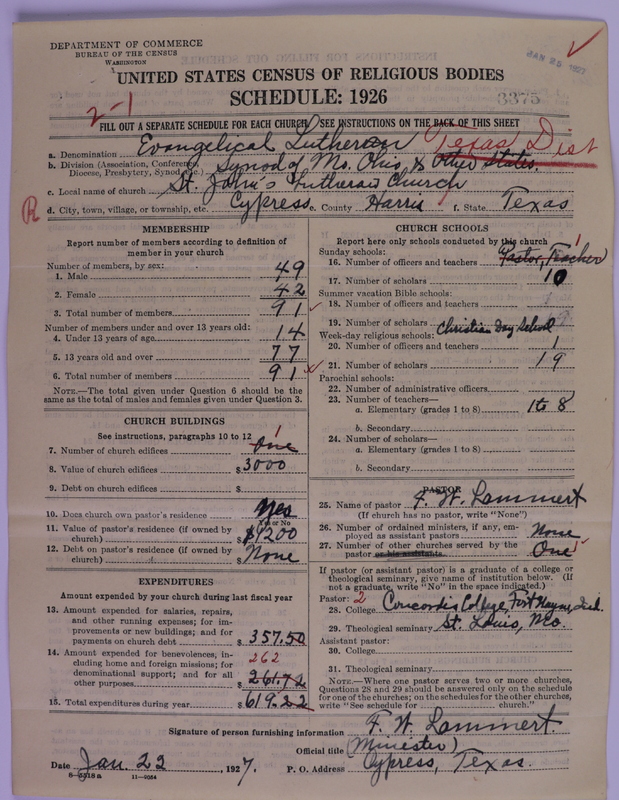 DEPARTMENT OF COMMERCE
BUREAU OF THE CENSUS
WASHINGTON
JAN 25 1927
UNITED STATES CENSUS OF RELIGIOUS BODIES
SCHEDULE: 1926
3375
2-1
FILL OUT A SEPARATE SCHEDULE FOR EACH CHURCH. SEE INSTRUCTIONS ON THE BACK OF THIS SHEET
a. Denomination Evangelical Lutheran Texas Dist
b. Division (Association, Conference, Diocese, Presbytery, Synod, etc.) Synod of Mo. Ohio, & Other States.
c. Local name of church St. John's Lutheran Church
R
d. City, town, village, or township, etc. Cypress e. County Harris f. State Texas
MEMBERSHIP
Report number of members according to definition of member in your church
Number of members, by sex:
1. Male 49
2. Female 42
3. Total number of members 91
Number of members under and over 13 years old:
4. Under 13 years of age 14
5. 13 years old and over 77
6. Total number of members 91
NOTE.—The total given under Question 6 should be the same as the total of males and females given under Question 3.
CHURCH BUILDINGS
See instructions, paragraphs 10 to 12
7. Number of church edifices One 1
8. Value of church edifices $3000
9. Debt on church edifices $
10. Does church own pastor's residence Yes
Yes or No
11. Value of pastor's residence (if owned by church) $4200
12. Debt on pastor's residence (if owned by church) $None
EXPENDITURES
Amount expended by your church during last fiscal year
13. Amount expended for salaries, repairs, and other running expenses; for improvements or new buildings; and for payments on church debt $357.50
14. Amount expended for benevolences, including home and foreign missions; for denominational support; and for all other purposes $261.72
262
15. Total expenditures during year $619.22
CHURCH SCHOOLS
Report here only schools conducted by this church
Sunday schools:
16. Number of officers and teachers Pastor, Teacher 1
17. Number of scholars 10
Summer vacation Bible schools:
18. Number of officers and teachers
19. Number of scholars
Week-day religious schools: Christian Day School
20. Number of officers and teachers 1
21. Number of scholars 19
Parochial schools:
22. Number of administrative officers
23. Number of teachers—
a. Elementary (grades 1 to 8) 1 to 8
b. Secondary
24. Number of scholars—
a. Elementary (grades 1 to 8)
b. Secondary
PASTOR
25. Name of pastor F. W. Lammert
(If church has no pastor, write "None")
26. Number of ordained ministers, if any, employed as assistant pastors None
27. Number of other churches served by the pastor or his assistants One 1
If pastor (or assistant pastor) is a graduate of a college or theological seminary, give name of institution below. (If not a graduate, write "No" in the space indicated.)
Pastor: 2
28. College Concordia College, Fort Wayne, Ind.
29. Theological seminary St. Louis, Mo.
Assistant pastor:
30. College
31. Theological seminary
NOTE.—Where one pastor serves two or more churches, Questions 28 and 29 should be answered only on the schedule for one of the churches; on the schedules for the other churches, write "See schedule for church."
Signature of person furnishing information F. W. Lammert
Official title (Minister)
Date Jan. 22, 1927. P. O. Address Cypress, Texas.
8—5518a 11—9054